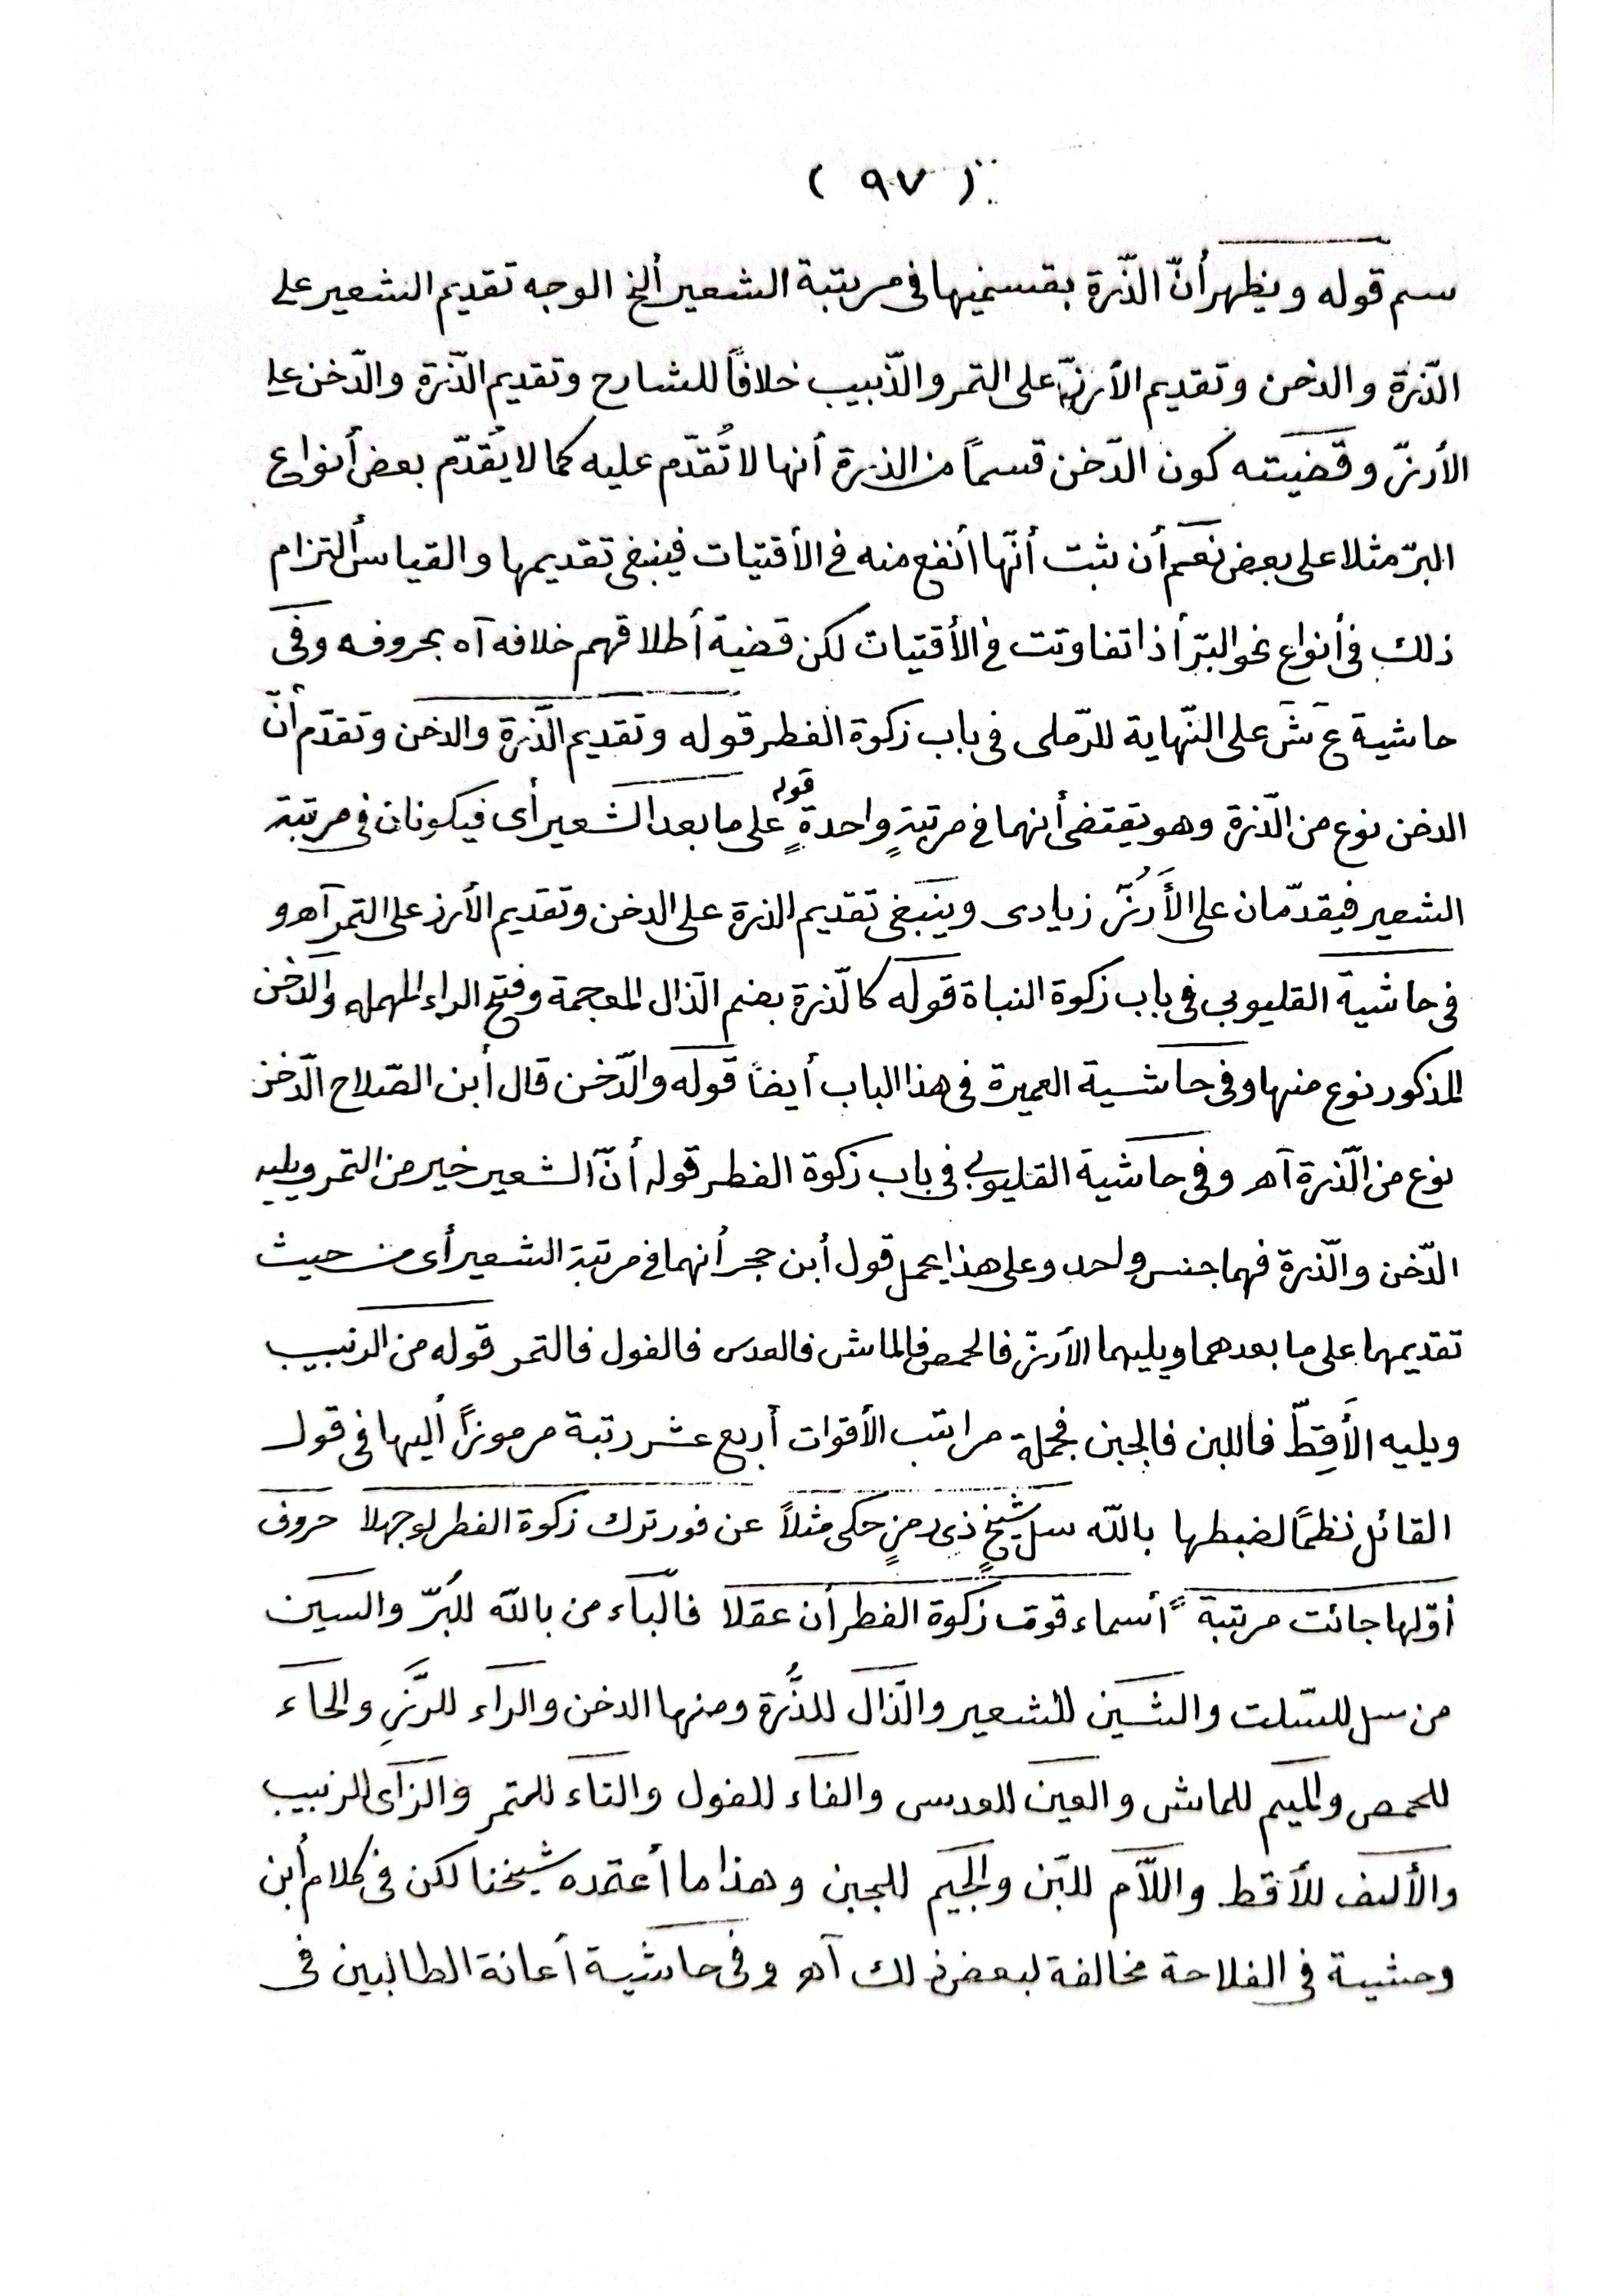 ( ٩٧ )
سم قوله ويظهر أنّ الذّرة بقسميها فى مرتبة الشعير ألخ الوجه تقديم الشعير على
الذّرة والدخن وتقديم الأرزّ على التمر والزّبيب خلافاً للشارح وتقديم الذّرة والدّخن على
الأرزّ وقضيته كون الدّخن قسماً من الذرة أنها لا تُقدّم عليه كما لا يُقدّم بعض أنواع
البرّ مثلا على بعض نعم أن ثبت أنّها أنفع منه فى الأقتيات فينبغى تقديمها والقياس ألتزام
ذلك فى أنواع نحو البرّ أذا تفاوتت فى الأقتيات لكن قضية أطلاقهم خلافه آه بحروفه وفى
حاشية ع ش على النّهاية للرّملى فى باب زكوة الفطر قوله وتقديم الذّرة والدخن وتقدّم أنّ
الدخن نوع من الذّرة وهو يقتضى أنهما فى مرتبةٍ واحدةٍ قوله على ما بعد الشعير أى فيكونان فى مرتبة
الشعير فيقدّمان على الأَرُزّ زيادى وينبغى تقديم الذرة على الدخن وتقديم الأرز على التمر آهـ و
فى حاشية القليوبى فى باب زكوة النباة قوله كالذّرة بضم الذال المعجمة وفتح الراء المهمله والدّخن
المذكور نوع منها وفى حاشية العميرة فى هذا الباب أيضاً قوله والدّخن قال أبن الصّلاح الدّخن
نوع من الذّرة آهـ وفى حاشية القليوبى فى باب زكوة الفطر قوله أنّ الشعير خير من التمر ويليه
الدّخن والذّرة فهما جنس واحد وعلى هذا يحمل قول أبن حجر أنهما فى مرتبة الشعير أى من حيث
تقديمهما على ما بعدهما ويليهما الأرزّ فالحمص فالماش فالعدس فالفول فالتمر قوله من الزبيب
ويليه الأَقِطّ فاللبن فالجبن فجملة مراتب الأقوات أربع عشر رتبة مرموزاً أليها فى قول
القائل نظمًا لضبطها بالله سل شيخٍ ذى رمزٍ حكى مثلاً عن فور ترك زكوة الفطر لوجهلا حروف
أوّلها جائت مرتبة أسماء قوت زكوة الفطر أن عقلا فالباء من بالله للبُرّ والسين
من سل للسّلت والشين للشعير والذّال للذُّرة ومنها الدخن والراء للرّزِ والحاء
للحمص والميم للماش والعين للعدس والفاء للفول والتاء للتمر والزاى للزبيب
والألف للأقط واللاّم للبّن والجيم للجبن وهذا ما أعتمده شيخنا لكن فى كلام أبن
وحشية فى الفلاحة مخالفة لبعض ذلك آهـ وفى حاشية أعانة الطالبين فى